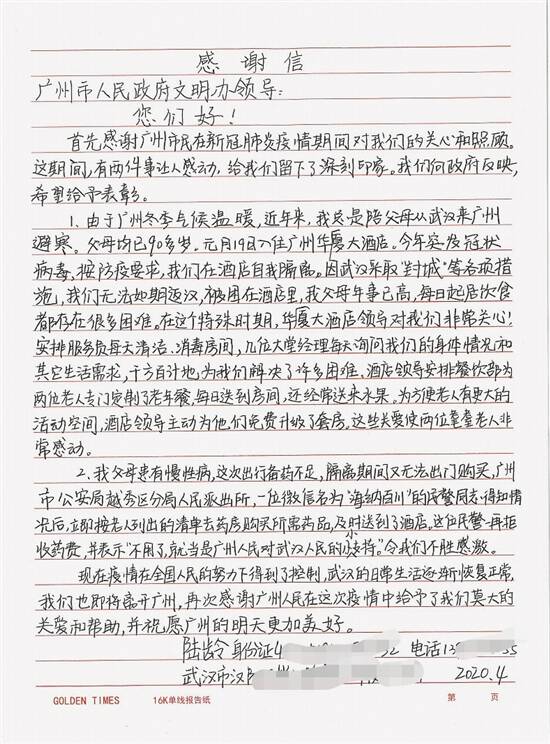 感谢信
广州市人民政府文明办领导:
您们好!
首先感谢广州市民在新冠肺炎疫情期间对我们的关心和照顾。
这期间,有两件事让人感动,给我们留下了深刻印象。我们向政府反映,
希望给予表彰。
1.由于广州冬季气候温暖,近年来,我总是陪父母从武汉来广州
避寒。父母均已90多岁。元月19日入住广州华厦大酒店。今年突发冠状
病毒,按防疫要求,我们在酒店自我隔离。因武汉采取"封城"等各项措
施,我们无法如期返汉,被困在酒店里,我父母年事已高,每日起居饮食
都存在很多困难。在这个特殊时期,华厦大酒店领导对我们非常关心!
安排服务员每天清洁、消毒房间,几位大堂经理每天询问我们的身体情况和
其它生活需求,千方百计地为我们解决了许多困难。酒店领导安排餐饮部为
两位老人专门定制了老年餐,每日送到房间,还经常送来水果。为方便老人有更大的
活动空间,酒店领导主动为他们免费升级了套房,这些关爱使两位耄耋老人非
常感动。
2.我父母患有慢性病,这次出行备药不足,隔离期间又无法出门购买,广州
市公安局越秀区分局人民派出所,一位微信名为"海纳百川"的民警同志,得知情
况后,立即按老人列出的清单去药房购买所需药品,及时送到了酒店。这位民警一再拒
收药费,并表示"不用了,就当是广州人民对武汉人民的小支持。"令我们不胜感激。
现在疫情在全国人民的努力下得到了控制,武汉的日常生活逐渐恢复正常,
我们也即将离开广州,再次感谢广州人民在这次疫情中给予了我们莫大的
关爱和帮助,并祝愿广州的明天更加美好。
陆龄 身份证4 32 电话13 35
武汉市汉 2020.4
GOLDEN TIMES 16K单线报告纸 第 页